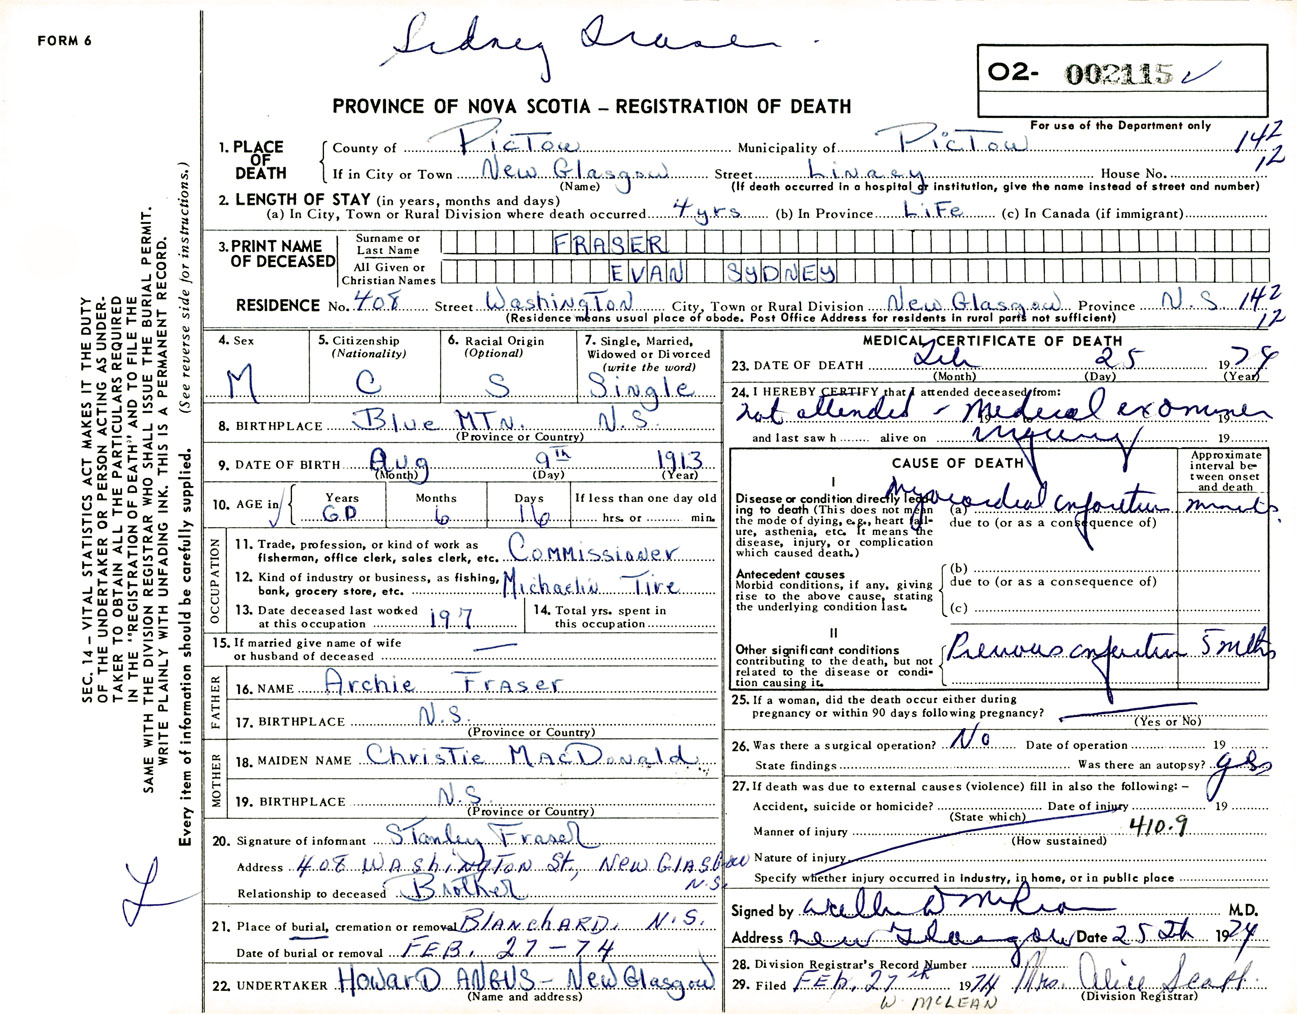 FORM 6
Sidney Fraser
O2- 002115
PROVINCE OF NOVA SCOTIA – REGISTRATION OF DEATH
For use of the Department only
1. PLACE OF DEATH
County of Pictou Municipality of Pictou 142
If in City or Town New Glasgow Street Linacy House No. 12
(Name) (If death occurred in a hospital or institution, give the name instead of street and number)
2. LENGTH OF STAY (in years, months and days)
(a) In City, Town or Rural Division where death occurred 4 yrs (b) In Province LiFe (c) In Canada (if immigrant)
3. PRINT NAME OF DECEASED
Surname or Last Name FRASER
All Given or Christian Names EVAN SYDNEY
RESIDENCE No. 408 Street Washington City, Town or Rural Division New Glasgow Province N.S 142
(Residence means usual place of abode. Post Office Address for residents in rural parts not sufficient) 12
4. Sex M
5. Citizenship (Nationality) C
6. Racial Origin (Optional) S
7. Single, Married, Widowed or Divorced (write the word) Single
8. BIRTHPLACE Blue MTN. N.S.
(Province or Country)
9. DATE OF BIRTH Aug 9th 1913
(Month) (Day) (Year)
10. AGE in Years 60 Months 6 Days 16 If less than one day old
hrs. or min.
OCCUPATION
11. Trade, profession, or kind of work as fisherman, office clerk, sales clerk, etc. Commissioner
12. Kind of industry or business, as fishing, bank, grocery store, etc. Michaelin Tire
13. Date deceased last worked at this occupation 197
14. Total yrs. spent in this occupation
15. If married give name of wife or husband of deceased —
FATHER
16. NAME Archie Fraser
17. BIRTHPLACE N.S.
(Province or Country)
MOTHER
18. MAIDEN NAME Christie MacDonald
19. BIRTHPLACE N.S.
(Province or Country)
20. Signature of informant Stanley Fraser
Address 408 Washington St., New Glasgow N.S.
Relationship to deceased Brother
21. Place of burial, cremation or removal Blanchard, N.S.
Date of burial or removal FEB. 27-74
22. UNDERTAKER Howard Angus - New Glasgow
(Name and address)
MEDICAL CERTIFICATE OF DEATH
23. DATE OF DEATH Feb 25 1974
(Month) (Day) (Year)
24. I HEREBY CERTIFY that I attended deceased from:
not attended - Medical examiner 19
and last saw h alive on inquiry 19
CAUSE OF DEATH
Approximate interval between onset and death
I
Disease or condition directly leading to death (This does not mean the mode of dying, e.g., heart failure, asthenia, etc. It means the disease, injury, or complication which caused death.)
(a) Myocardial infarction
due to (or as a consequence of)
Antecedent causes
Morbid conditions, if any, giving rise to the above cause, stating the underlying condition last.
(b)
due to (or as a consequence of)
(c)
II
Other significant conditions contributing to the death, but not related to the disease or condition causing it.
Previous infarction 5 mths
25. If a woman, did the death occur either during pregnancy or within 90 days following pregnancy?
(Yes or No)
26. Was there a surgical operation? No Date of operation 19
State findings Was there an autopsy? yes
27. If death was due to external causes (violence) fill in also the following: –
Accident, suicide or homicide? Date of injury 19
(State which)
Manner of injury 410.9
(How sustained)
Nature of injury
Specify whether injury occurred in industry, in home, or in public place
Signed by M.D.
Address New Glasgow Date 25th 1974
28. Division Registrar's Record Number
29. Filed FEB. 27th 1974 Mrs. Alice Scott
(Division Registrar)
W McLEAN
SEC. 14 – VITAL STATISTICS ACT MAKES IT THE DUTY
OF THE UNDERTAKER OR PERSON ACTING AS UNDER-
TAKER TO OBTAIN ALL THE PARTICULARS REQUIRED
IN THE "REGISTRATION OF DEATH" AND TO FILE THE
SAME WITH THE DIVISION REGISTRAR WHO SHALL ISSUE THE BURIAL PERMIT.
WRITE PLAINLY WITH UNFADING INK. THIS IS A PERMANENT RECORD.
Every item of information should be carefully supplied. (See reverse side for instructions.)